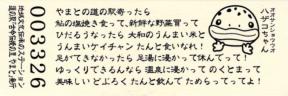 地域文化伝承のステーション
003326
やまとの道の駅寄ったら
鮎の塩焼き食って、新鮮な野菜買って
ひだるうなったら 大和のうんまい米と
うんまいケイチャン たんと食いなれ!
足がてきなかったら 足湯に浸かって休んでって!
ゆっくりできるんなら 温泉に浸かって のくとまって
美味しい どぶろく たんと飲んで たのもしってってよ!
オオサンショウウオ
ハザコちゃん